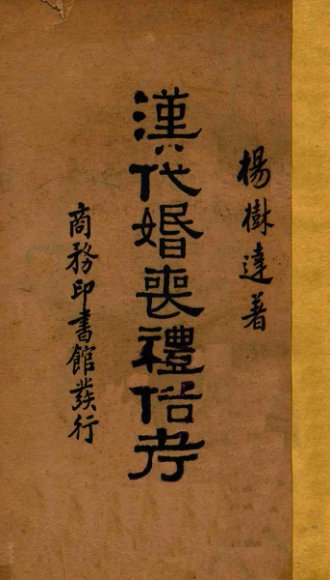 楊樹達著
漢代婚喪禮俗考
商務印書館發行